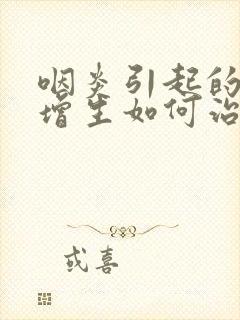 咽炎引起的
增生如何治
或喜